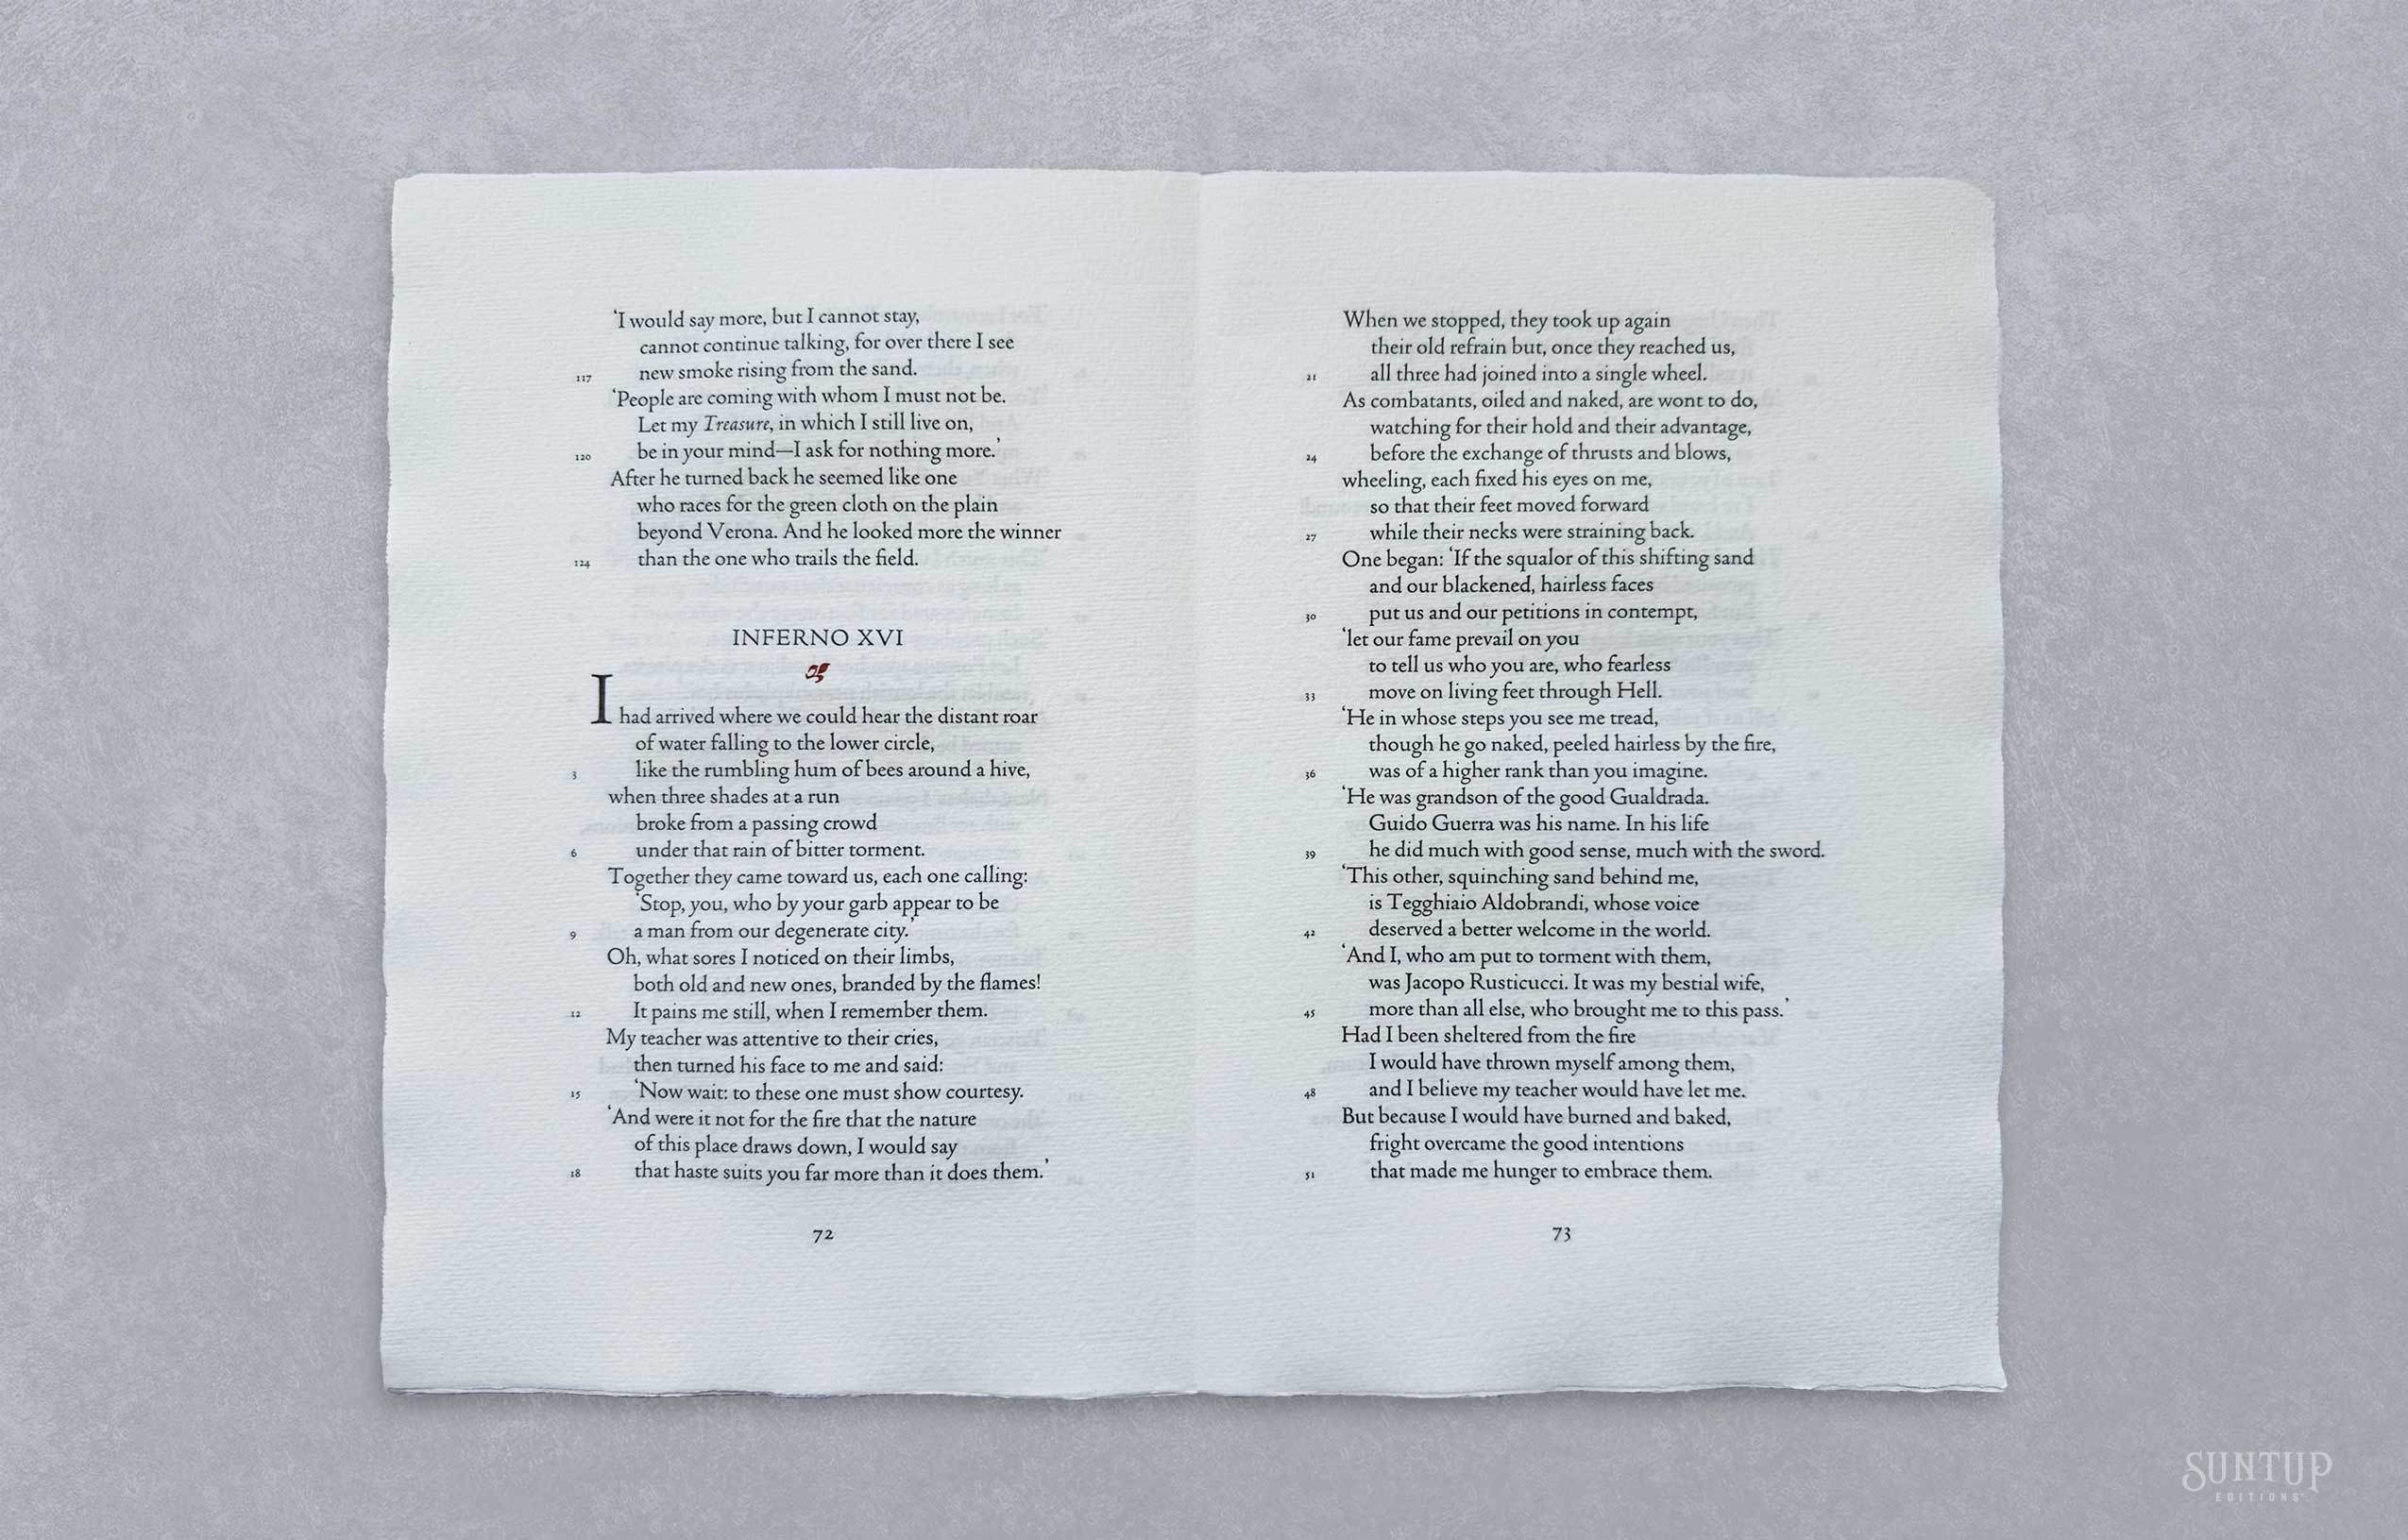 ‘I would say more, but I cannot stay,
cannot continue talking, for over there I see
117 new smoke rising from the sand.
‘People are coming with whom I must not be.
Let my Treasure, in which I still live on,
120 be in your mind—I ask for nothing more.’
After he turned back he seemed like one
who races for the green cloth on the plain
beyond Verona. And he looked more the winner
124 than the one who trails the field.
INFERNO XVI
I had arrived where we could hear the distant roar
of water falling to the lower circle,
3 like the rumbling hum of bees around a hive,
when three shades at a run
broke from a passing crowd
6 under that rain of bitter torment.
Together they came toward us, each one calling:
‘Stop, you, who by your garb appear to be
9 a man from our degenerate city.’
Oh, what sores I noticed on their limbs,
both old and new ones, branded by the flames!
12 It pains me still, when I remember them.
My teacher was attentive to their cries,
then turned his face to me and said:
15 ‘Now wait: to these one must show courtesy.
‘And were it not for the fire that the nature
of this place draws down, I would say
18 that haste suits you far more than it does them.’
72
When we stopped, they took up again
their old refrain but, once they reached us,
21 all three had joined into a single wheel.
As combatants, oiled and naked, are wont to do,
watching for their hold and their advantage,
24 before the exchange of thrusts and blows,
wheeling, each fixed his eyes on me,
so that their feet moved forward
27 while their necks were straining back.
One began: ‘If the squalor of this shifting sand
and our blackened, hairless faces
30 put us and our petitions in contempt,
‘let our fame prevail on you
to tell us who you are, who fearless
33 move on living feet through Hell.
‘He in whose steps you see me tread,
though he go naked, peeled hairless by the fire,
36 was of a higher rank than you imagine.
‘He was grandson of the good Gualdrada.
Guido Guerra was his name. In his life
39 he did much with good sense, much with the sword.
‘This other, squinching sand behind me,
is Tegghiaio Aldobrandi, whose voice
42 deserved a better welcome in the world.
‘And I, who am put to torment with them,
was Jacopo Rusticucci. It was my bestial wife,
45 more than all else, who brought me to this pass.’
Had I been sheltered from the fire
I would have thrown myself among them,
48 and I believe my teacher would have let me.
But because I would have burned and baked,
fright overcame the good intentions
51 that made me hunger to embrace them.
73
SUNTUP
EDITIONS